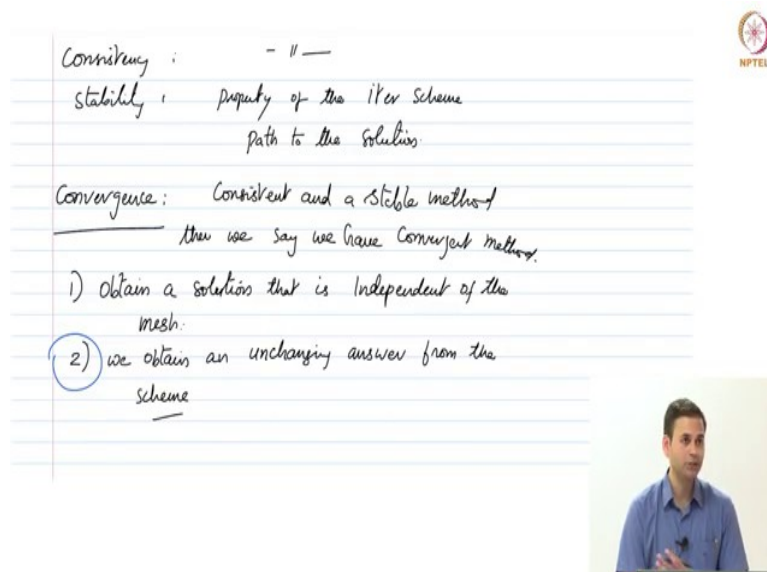 Consistency : - 11 —
Stability : Property of the iter scheme
path to the solution.
NPTEL
Convergence : Consistent and a stable method
then we say we have Convergent method.
1) obtain a solution that is Independent of the
mesh.
2) we obtain an unchanging answer from the
scheme